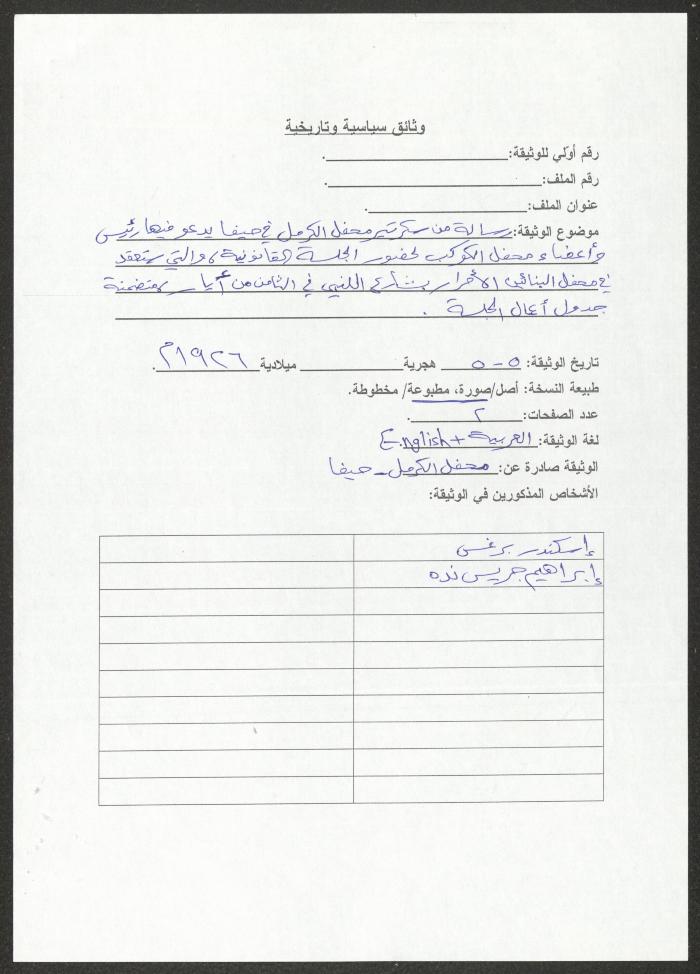 وثائق سياسية وتاريخية
رقم أولي للوثيقة:
رقم الملف:
عنوان الملف:
موضوع الوثيقة: رسالة من سكرتير محفل الكرمل في حيفا يدعو فيها رئيس
وأعضاء محفل الكوكب لحضور الجلسة القانونية، والتي ستعقد
في محفل البنائين الأحرار بشارع اللنبي في الثامن من أيار، متضمنة
جدول أعمال الجلسة .
تاريخ الوثيقة: ٥-٥ هجرية ميلادية ١٩٢٦م.
طبيعة النسخة: أصل/صورة، مطبوعة/ مخطوطة.
عدد الصفحات: ٢.
لغة الوثيقة: العربية + English
الوثيقة صادرة عن: محفل الكرمل - حيفا
الأشخاص المذكورين في الوثيقة:
إسكندر برغس
إبراهيم جريس نده